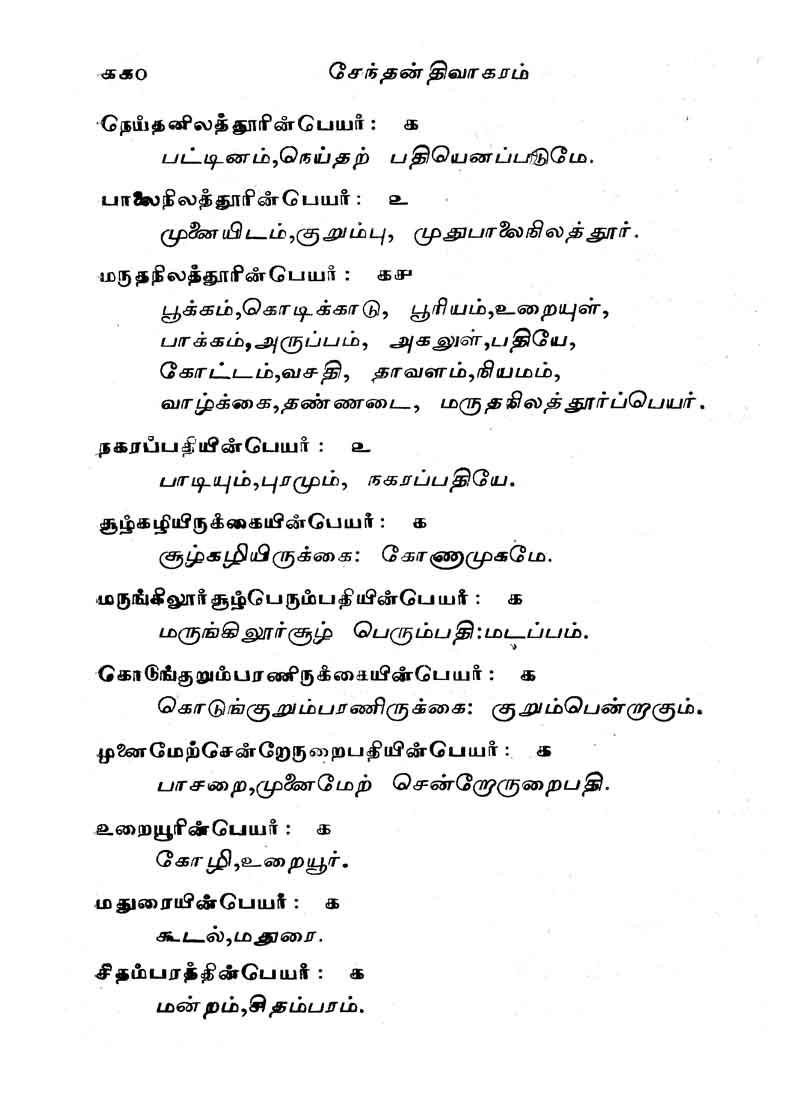 ௧௧௦ சேந்தன் திவாகரம்
நெய்தனிலத்தூரின்பெயர் : ௧
பட்டினம்,நெய்தற் பதியெனப்படுமே.
பாலைநிலத்தூரின்பெயர் : ௨
முனையிடம்,குறும்பு, முதுபாலைநிலத்தூர்.
மருதநிலத்தூரின்பெயர் : ௧௪
பூக்கம்,கொடிக்காடு, பூரியம்,உறையுள்,
பாக்கம்,அருப்பம், அகலுள்,பதியே,
கோட்டம்,வசதி, தாவளம்,நியமம்,
வாழ்க்கை,தண்ணடை, மருதநிலத்தூர்ப்பெயர்.
நகரப்பதியின்பெயர் : ௨
பாடியும்,புரமும், நகரப்பதியே.
சூழ்கழியிருக்கையின்பெயர் : ௧
சூழ்கழியிருக்கை: கோணாமுகமே.
மருங்கிலூர்சூழ்பெரும்பதியின்பெயர் : ௧
மருங்கிலூர்சூழ் பெரும்பதி:மடப்பம்.
கொடுங்குறும்பரணிருக்கையின்பெயர் : ௧
கொடுங்குறும்பரணிருக்கை: குறும்பென்றாகும்.
முனைமேற்சென்றோருறைபதியின்பெயர் : ௧
பாசறை,முனைமேற் சென்றோருறைபதி.
உறையூரின்பெயர் : ௧
கோழி,உறையூர்.
மதுரையின்பெயர் : ௧
கூடல்,மதுரை.
சிதம்பரத்தின்பெயர் : ௧
மன்றம்,சிதம்பரம்.